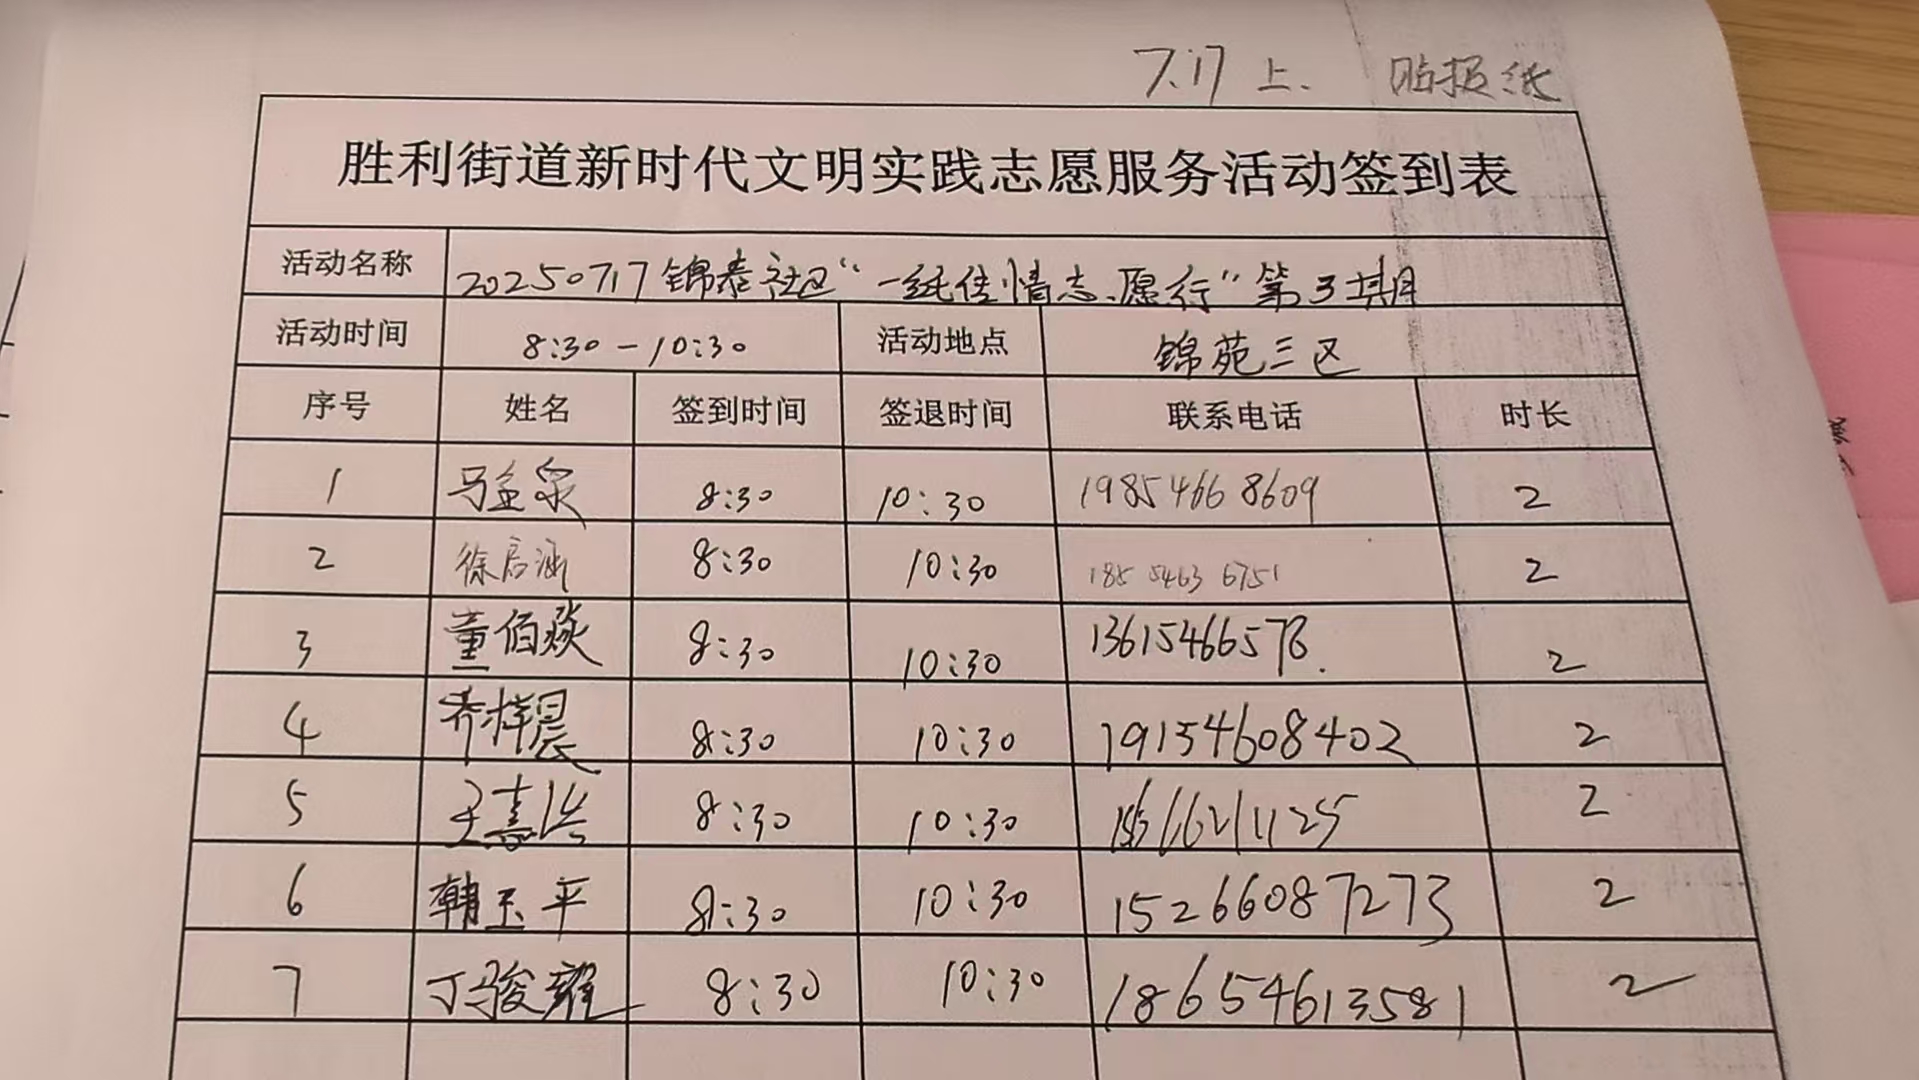 7.17 上. 贴报纸
胜利街道新时代文明实践志愿服务活动签到表
活动名称 20250717锦泰社区“一纸传情志愿行”第3期
活动时间 8:30-10:30 活动地点 锦苑三区
序号 姓名 签到时间 签退时间 联系电话 时长
1 马金泉 8:30 10:30 19854668609 2
2 徐启涵 8:30 10:30 185 5463 6751 2
3 董佰焱 8:30 10:30 2
4 乔梓晨 8:30 10:30 19154608402 2
5 王嘉洪 8:30 10:30 2
6 韩玉平 8:30 10:30 15266087273 2
7 丁骏耀 8:30 10:30 18654613581 2